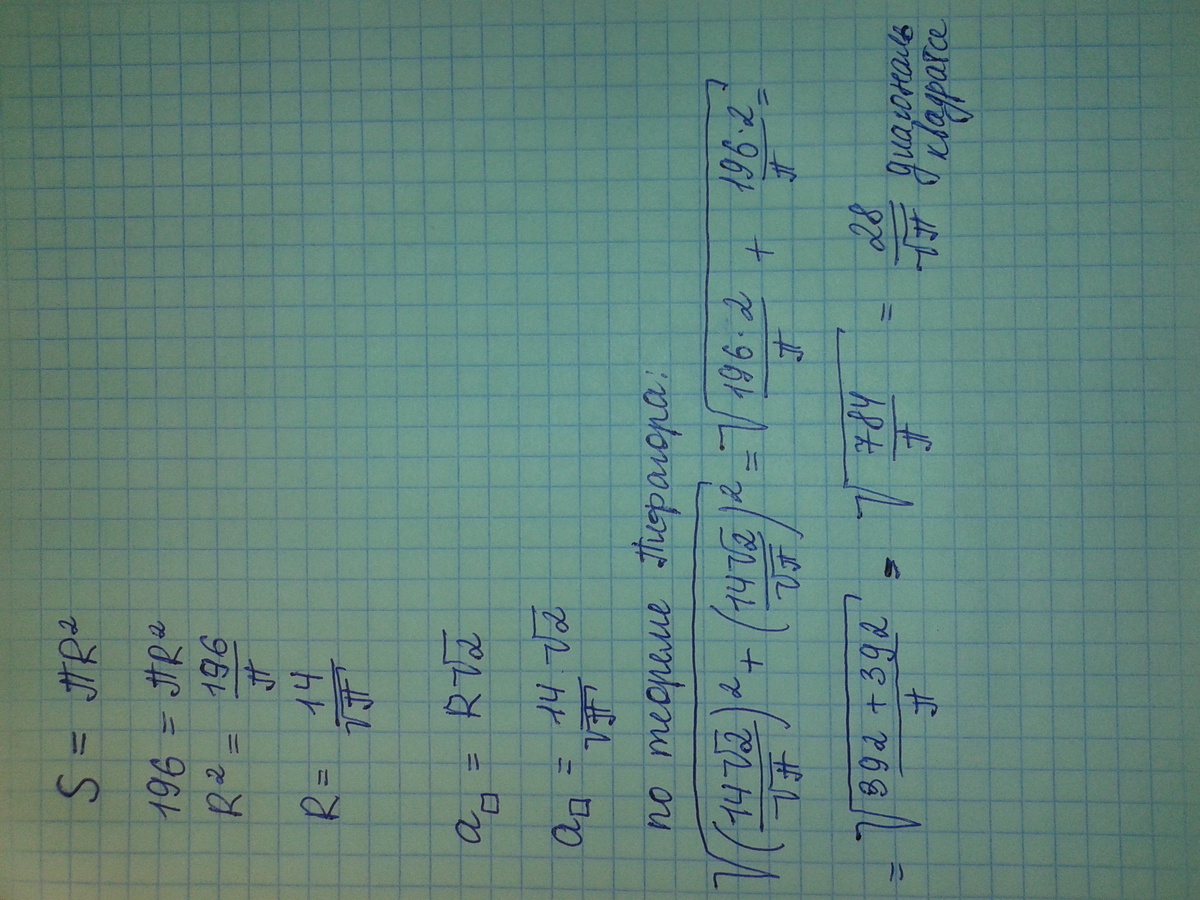 S = πR²
196 = πR²
R² = 196/π
R = 14/√π
a□ = R√2
a□ = 14/√π · √2
по теореме Пифагора:
√((14√2/√π)² + (14√2/√π)²) = √(196·2/π + 196·2/π) =
= √((392 + 392)/π) = √(784/π) = 28/√π диагональ
квадрата